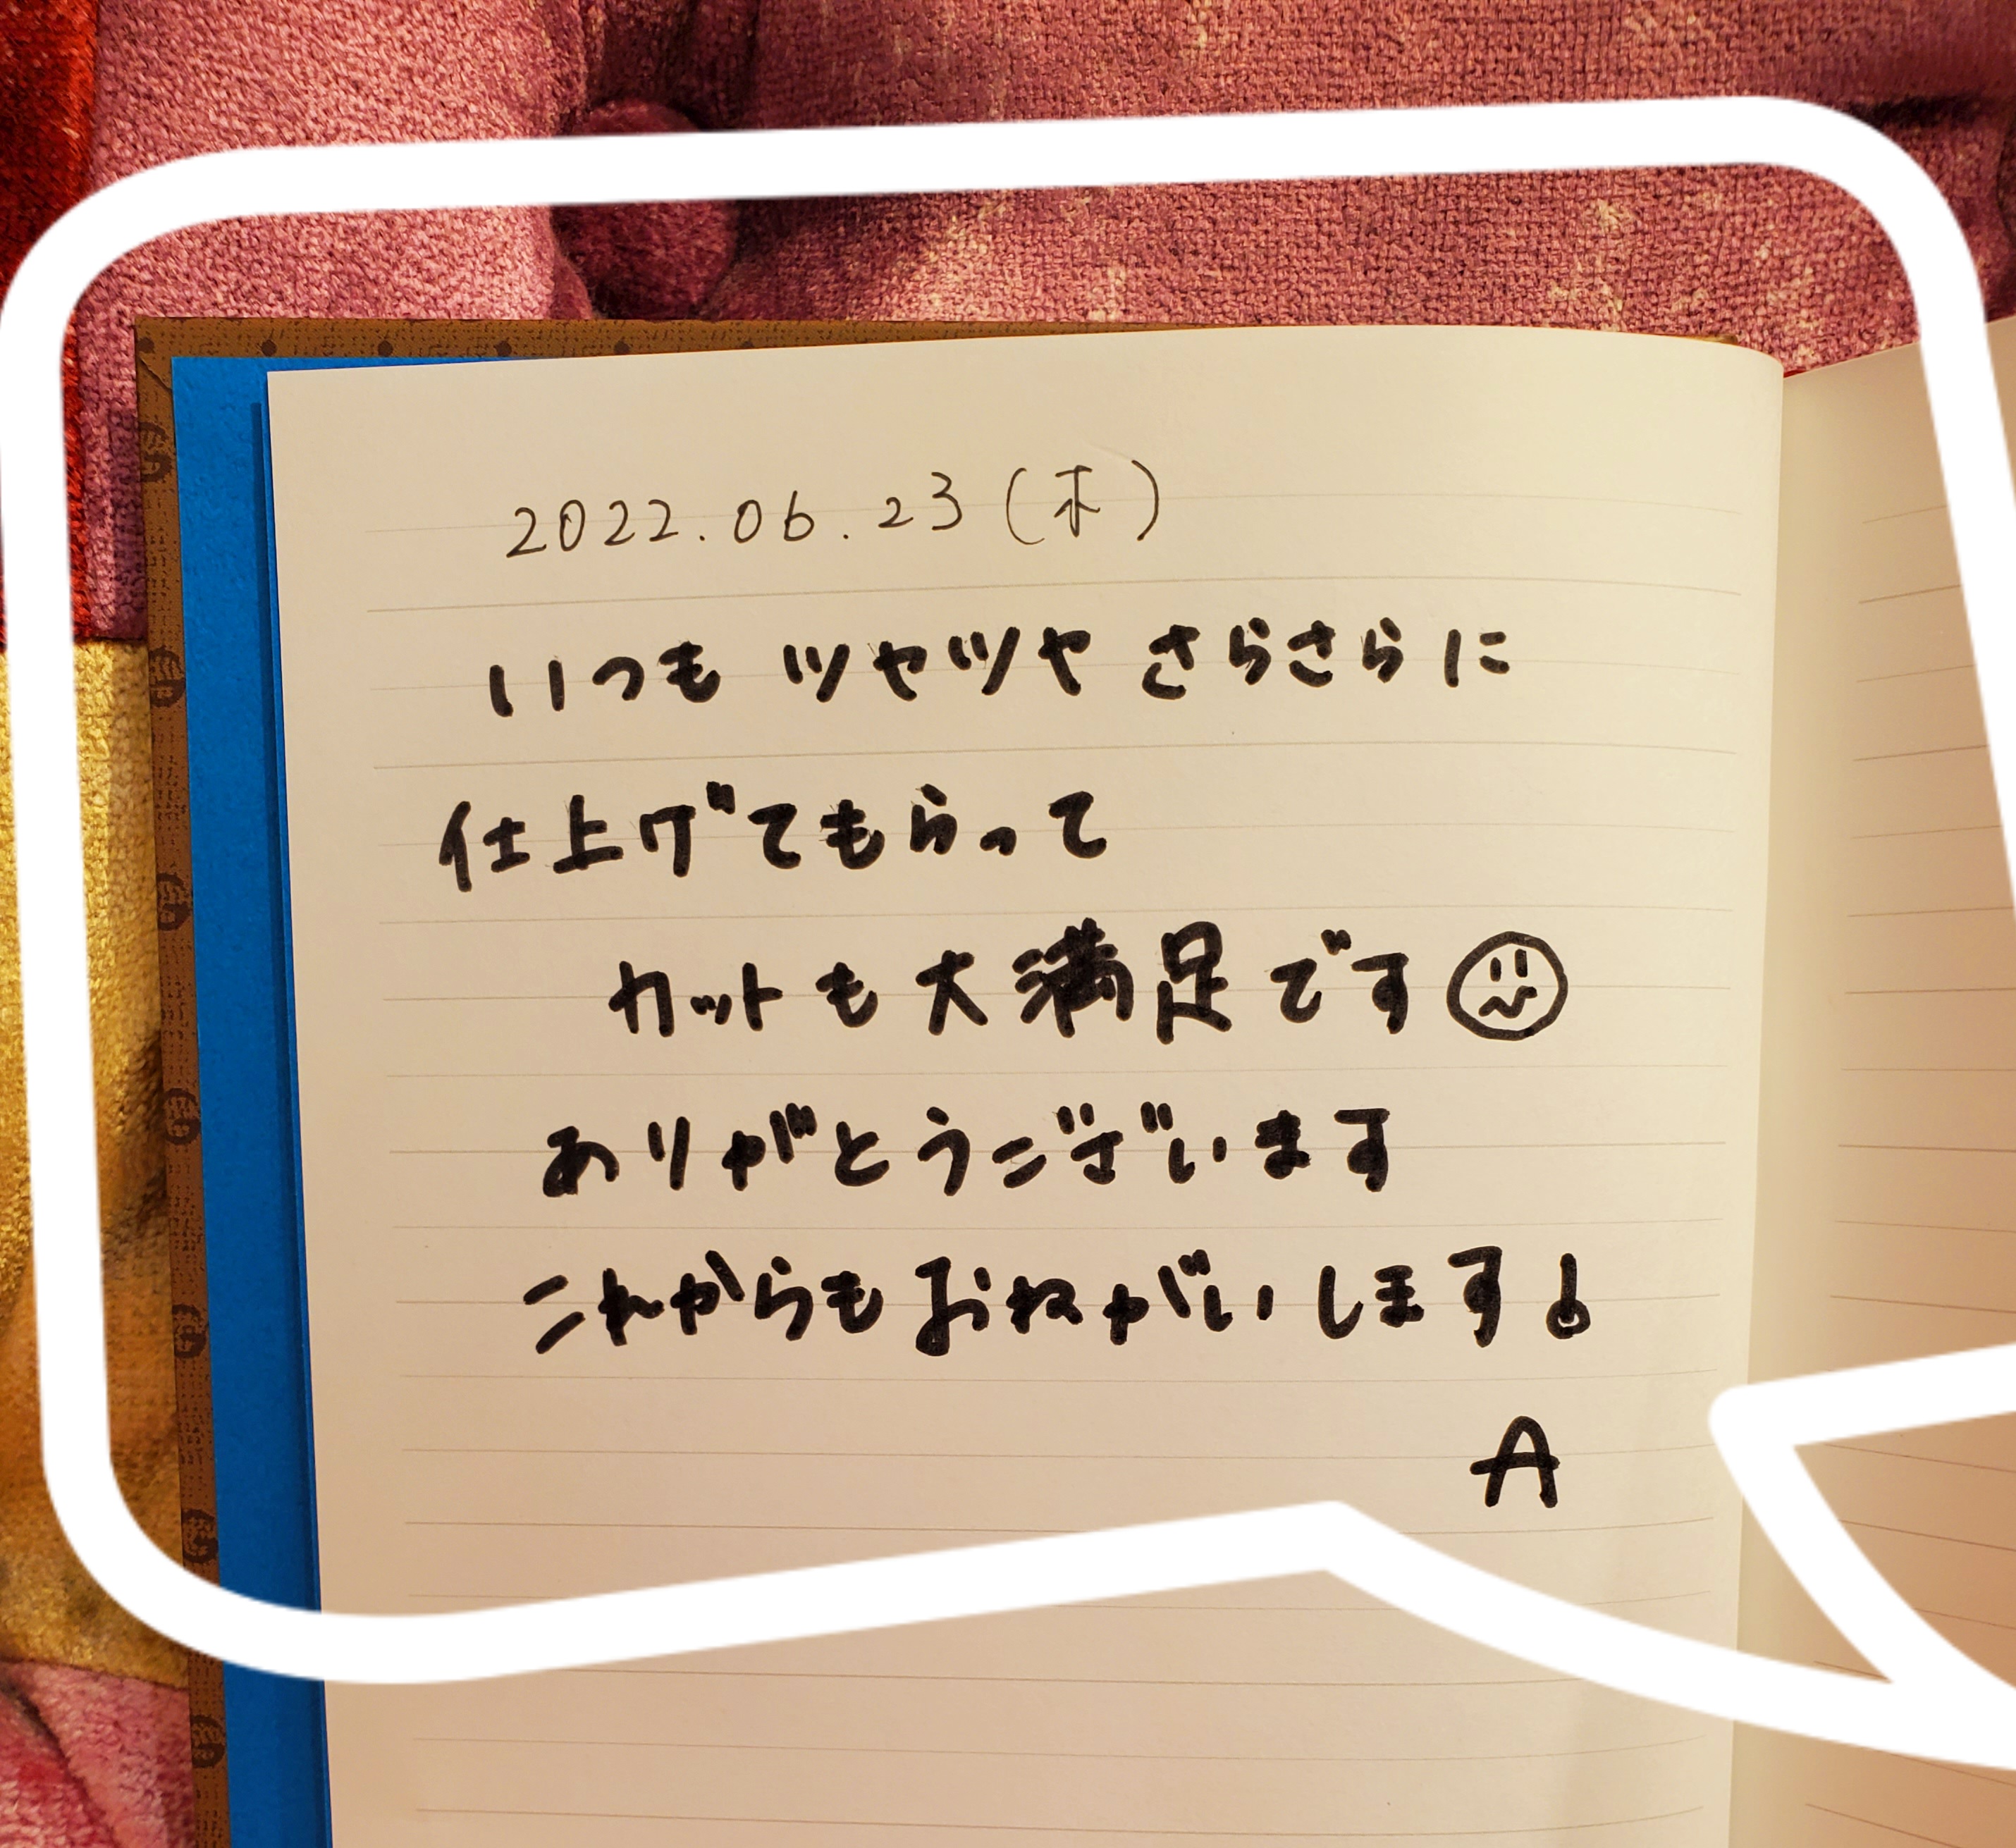 2022.06.23(木)
いつも ツヤツヤ さらさらに
仕上げてもらって
カットも大満足です
ありがとうございます
これからもおねがいします!
A